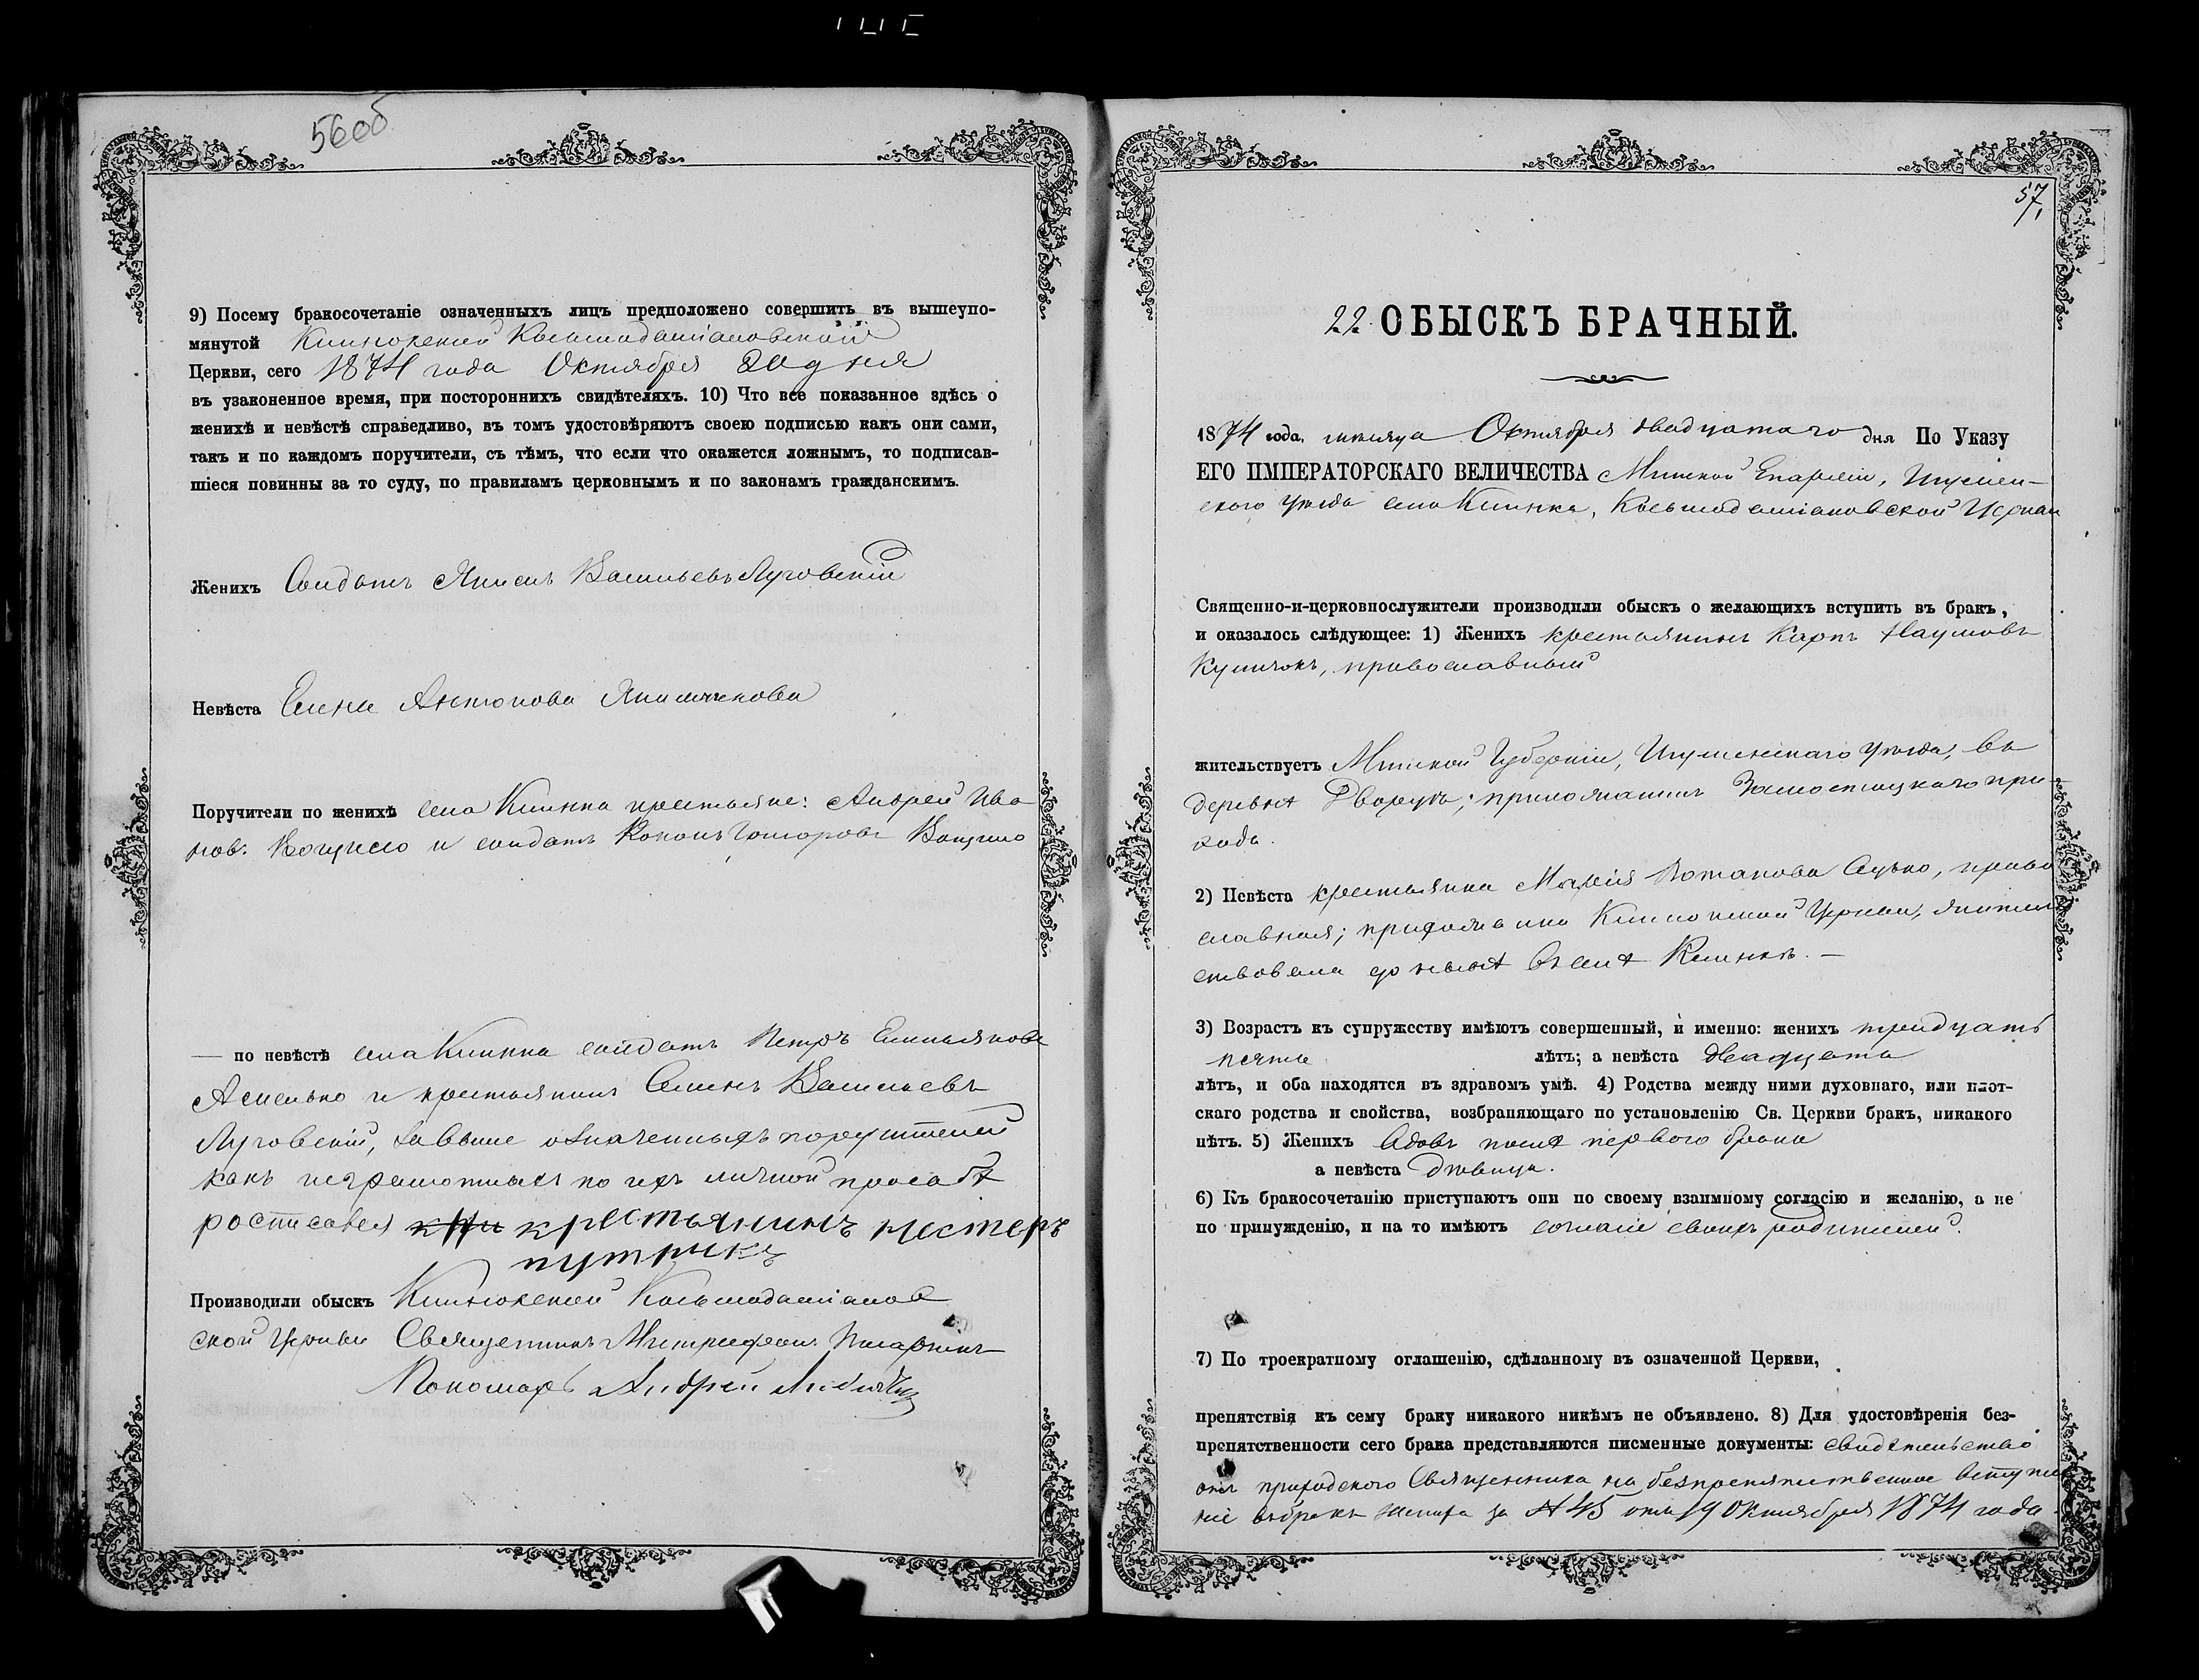 56об
9) Посему бракосочетаніе означенныхъ лицъ предположено совершить въ вышеупо-
мянутой Клинокской Косьмодаміановской
Церкви, сего 1874 года Октября 20 дня
въ узаконенное время, при постороннихъ свидѣтеляхъ. 10) Что все показанное здѣсь о
женихѣ и невѣстѣ справедливо, въ томъ удостовѣряютъ своею подписью какъ они сами,
такъ и по каждомъ поручители, съ тѣмъ, что если что окажется ложнымъ, то подписав-
шіеся повинны за то суду, по правиламъ церковнымъ и по законамъ гражданскимъ.
Женихъ Солдатъ Васильевъ Луговскій
Невѣста Елена Антонова
Поручители по женихѣ села Клинка крестьяне: Андрей Ива
нов. и солдатъ Кононъ
— по невѣстѣ села Клинка солдатъ Петръ Емельяновъ
и крестьянинъ Семенъ Васильевъ
Луговскій, за выше означенныхъ поручителей
какъ неграмотныхъ по ихъ личной просьбѣ
росписався крестьянинъ нестеръ
путрикъ
Производили обыскъ Клинокской Косьмодаміанов
ской Церкви Священникъ Митрофанъ
Пономарь Андрей
57
22 ОБЫСКЪ БРАЧНЫЙ.
1874 года, мѣсяца Октября двадцатаго дня По Указу
ЕГО ИМПЕРАТОРСКАГО ВЕЛИЧЕСТВА Минской Епархіи, Игумен-
ского Уѣзда села Клинка, Косьмодаміановской Церкви
Священно-и-церковнослужители производили обыскъ о желающихъ вступить въ бракъ,
и оказалось слѣдующее: 1) Женихъ крестьянинъ Карпъ Наумовъ
православный
жительствуетъ Минской Губерніи, Игуменскаго Уѣзда, въ
деревнѣ Дворецъ; прихожанинъ при-
хода.
2) Невѣста крестьянка Марія Потапова право
славная; прихожанка Клинокской Церкви, жител
ствовала до нынѣ въ селѣ Клинкѣ. —
3) Возрастъ къ супружеству имѣютъ совершенный, и именно: женихъ тридцать
пять лѣтъ; а невѣста двадцать
лѣтъ, и оба находятся въ здравомъ умѣ. 4) Родства между ними духовнаго, или плот-
скаго родства и свойства, возбраняющаго по установленію Св. Церкви бракъ, никакого
нѣтъ. 5) Женихъ вдовъ послѣ первого брака
а невѣста дѣвица.
6) Къ бракосочетанію приступаютъ они по своему взаимному согласію и желанію, а не
по принужденію, и на то имѣютъ согласіе своихъ родителей.
7) По троекратному оглашенію, сдѣланному въ означенной Церкви,
препятствія къ сему браку никакого никѣмъ не объявлено. 8) Для удостовѣренія без-
препятственности сего брака представляются писменные документы: свидѣтельство
отъ приходского Священника на безпрепятственное вступле
ніе въ бракъ жениха за №45 отъ 19 Октября 1874 года